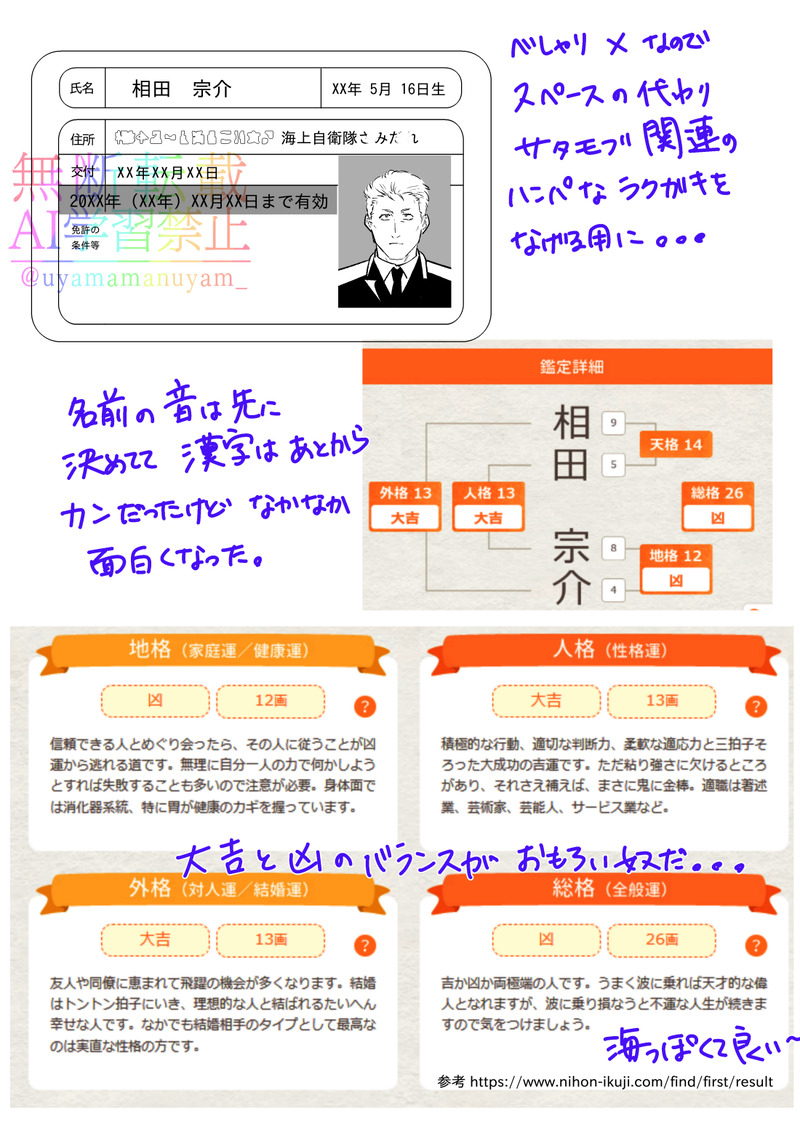 べしゃり × なので
スペースの代わり
サタモブ関連の
ハンパな ラクガキを
なげる用に。。。
氏名 相田 宗介 XX年 5月 16日生
住所 海上自衛隊さみだれ
交付 XX年XX月XX日
20XX年（XX年）XX月XX日まで有効
免許の
条件等
無断転載
AI学習禁止
@uyamamanuyam_
名前の音は先に
決めてて 漢字はあとから
カンだったけど なかなか
面白くなった。
鑑定詳細
相 9
田 5
宗 8
介 4
天格 14
外格 13
大吉
人格 13
大吉
総格 26
凶
地格 12
凶
地格（家庭運／健康運）
凶 12画 ?
信頼できる人とめぐり会ったら、その人に従うことが凶
運から逃れる道です。無理に自分一人の力で何かしよう
とすれば失敗することも多いので注意が必要。身体面で
は消化器系統、特に胃が健康のカギを握っています。
人格（性格運）
大吉 13画 ?
積極的な行動、適切な判断力、柔軟な適応力と三拍子そ
ろった大成功の吉運です。ただ粘り強さに欠けるところ
があり、それさえ補えば、まさに鬼に金棒。適職は著述
業、芸術家、芸能人、サービス業など。
大吉と凶のバランスが おもろい奴だ。。。
外格（対人運／結婚運）
大吉 13画 ?
友人や同僚に恵まれて飛躍の機会が多くなります。結婚
はトントン拍子にいき、理想的な人と結ばれるたいへん
幸せな人です。なかでも結婚相手のタイプとして最高な
のは実直な性格の方です。
総格（全般運）
凶 26画 ?
吉か凶か両極端の人です。うまく波に乗れば天才的な偉
人となれますが、波に乗り損なうと不運な人生が続きま
すので気をつけましょう。
海っぽくて良い〜
参考 https://www.nihon-ikuji.com/find/first/result